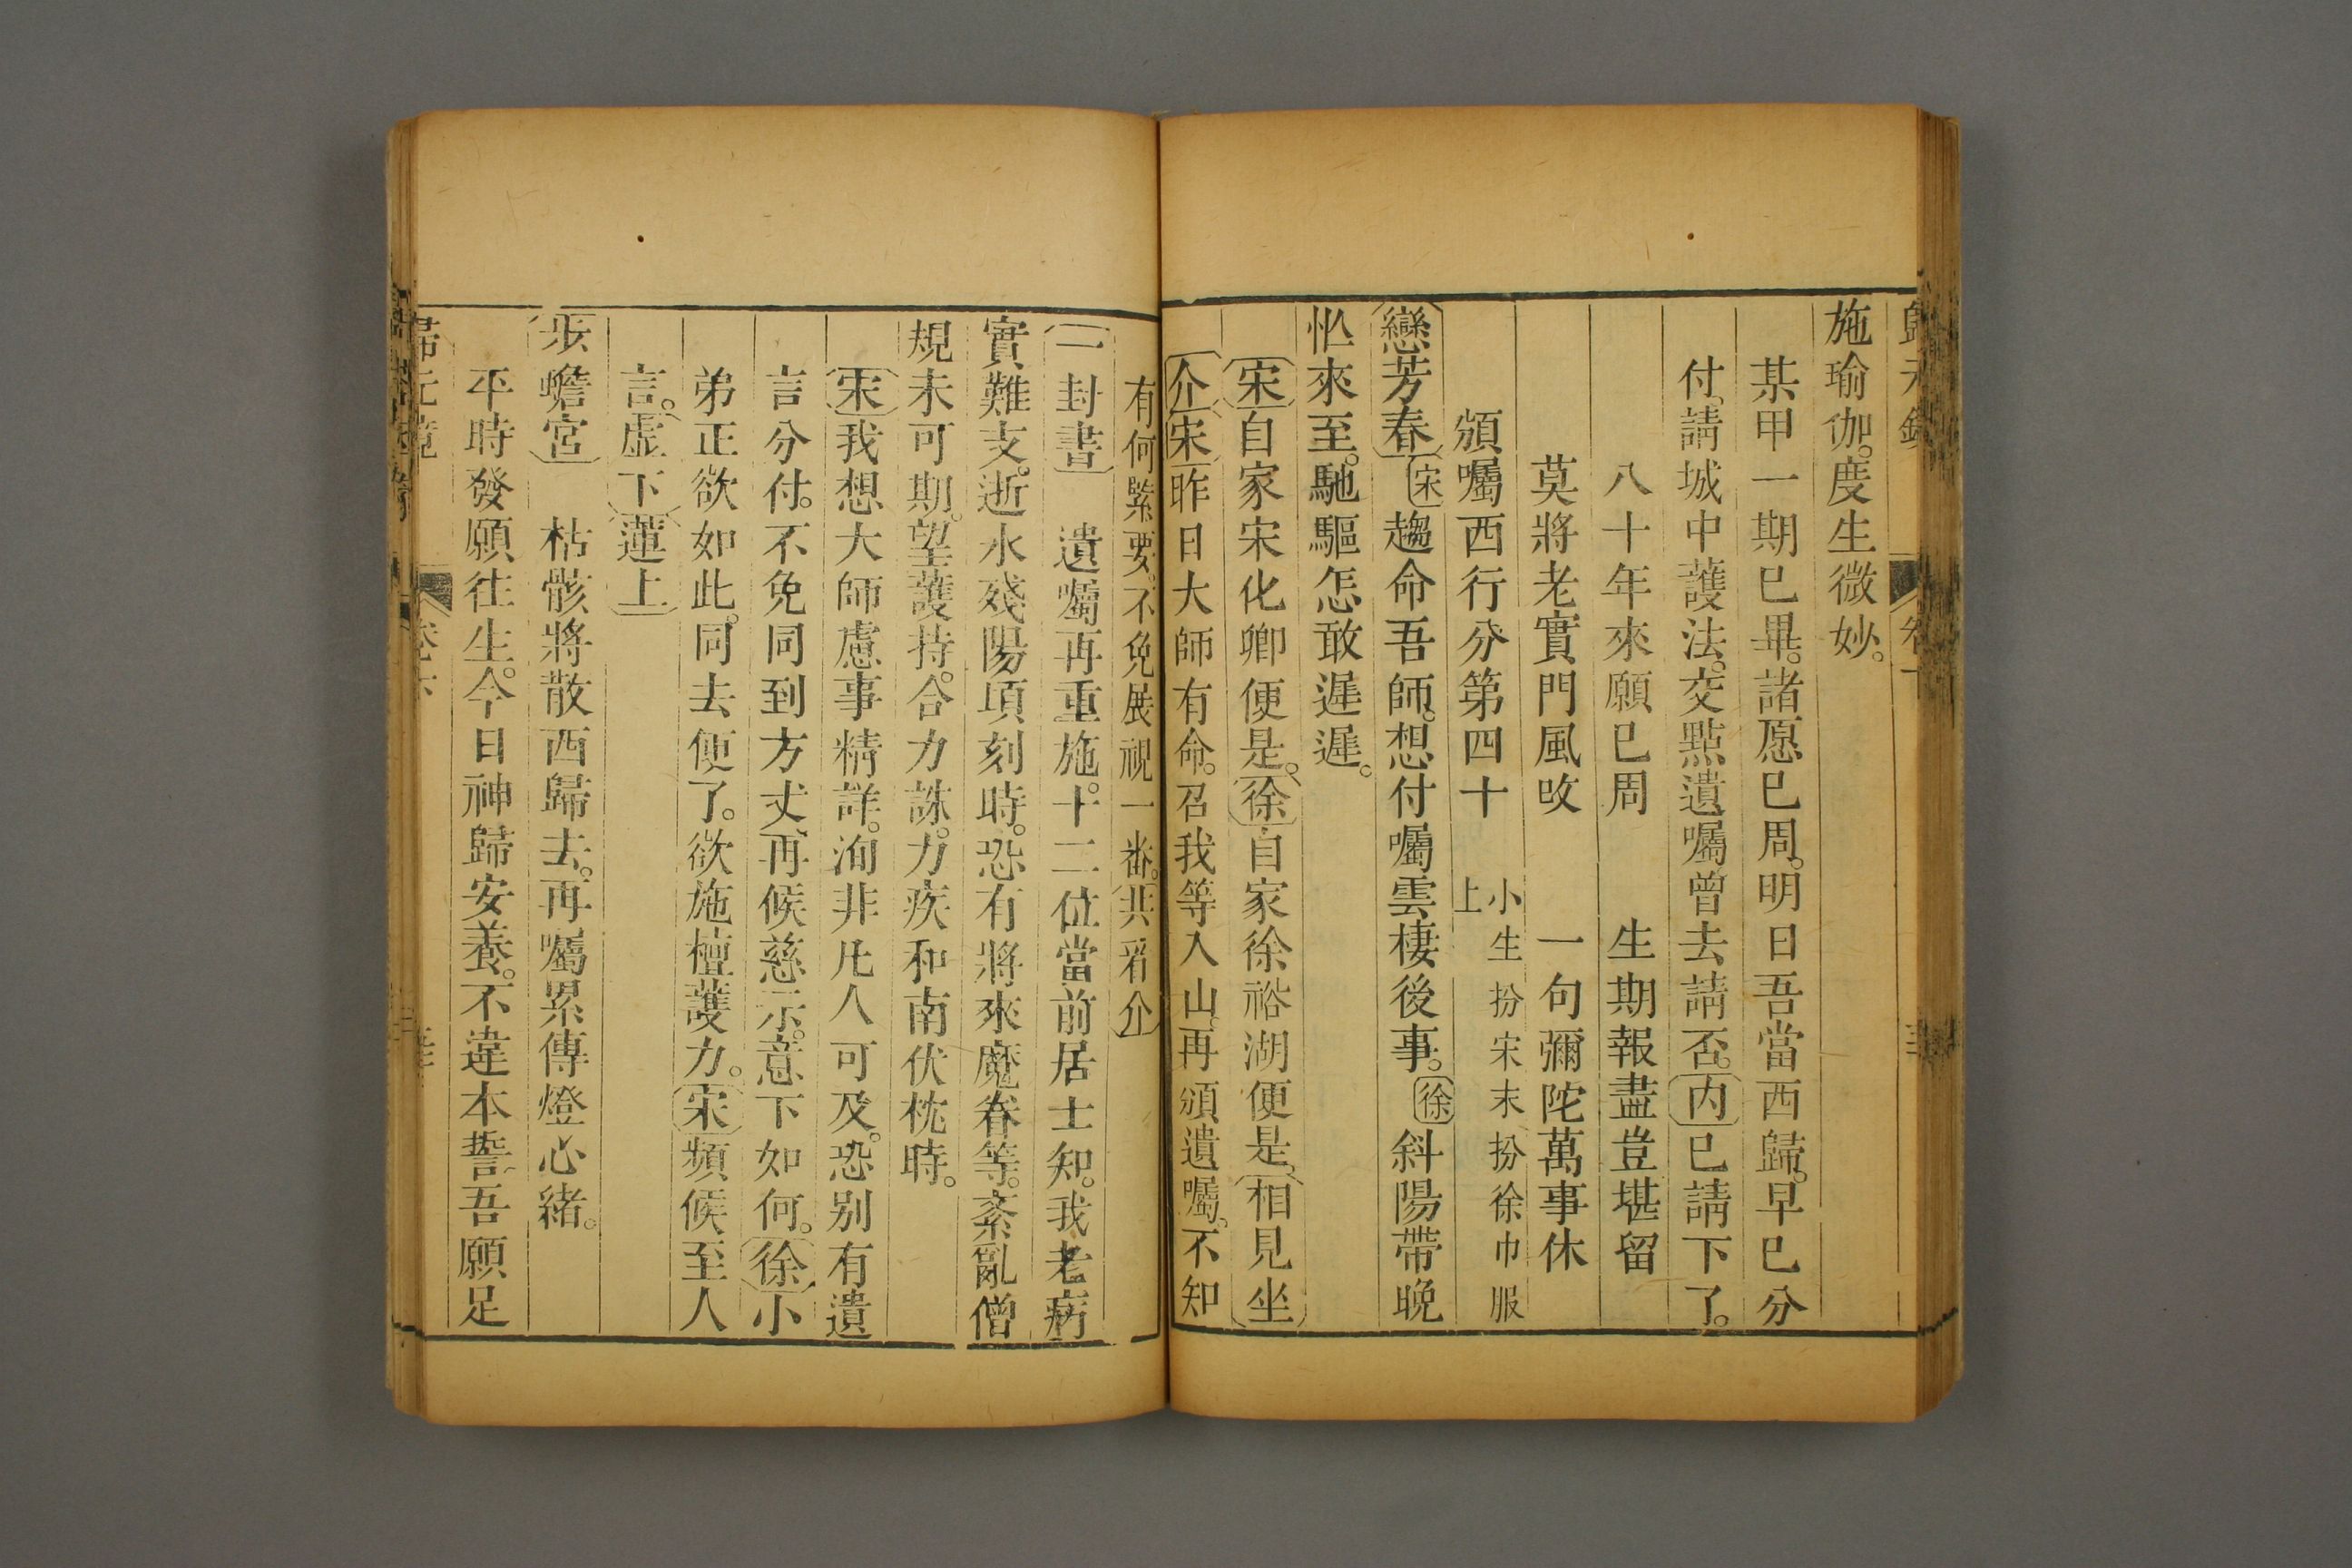 施瑜伽。度生微妙。
某甲一期已畢。諸愿已周。明日吾當西歸。早已分
付。請城中護法。交點遺囑曾去請否。内已請下了。
八十年來願已周 生期報盡豈堪留
莫將老實門風改 一句彌陀萬事休
頒囑西行分第四十 小生扮宋末扮徐巾服上
戀芳春 宋趨命吾師。想付囑雲棲後事。徐斜陽帶晚
忙來至。馳驅怎敢遲遲。
宋自家宋化卿便是。徐自家徐裕湖便是。相見坐
介宋昨日大師有命。召我等入山。再頒遺囑。不知
有何緊要。不免展視一番。共看介
一封書 遺囑再重施。十二位當前居士知。我老病
實難支。逝水殘陽項刻時。恐有將來魔眷等。紊亂僧
規未可期。望護持。合力誅。力疾和南伏枕時。
宋我想大師慮事精詳。洵非凡人可及。恐别有遺
言分付。不免同到方丈。再候慈示。意下如何。徐小
弟正欲如此。同去便了。欲施檀護力。宋頻候至人
言。虛下蓮上
步蟾宮 枯骸將散西歸去。再囑累傳燈心緒。
平時發願往生。今日神歸安養。不違本誓。吾願足